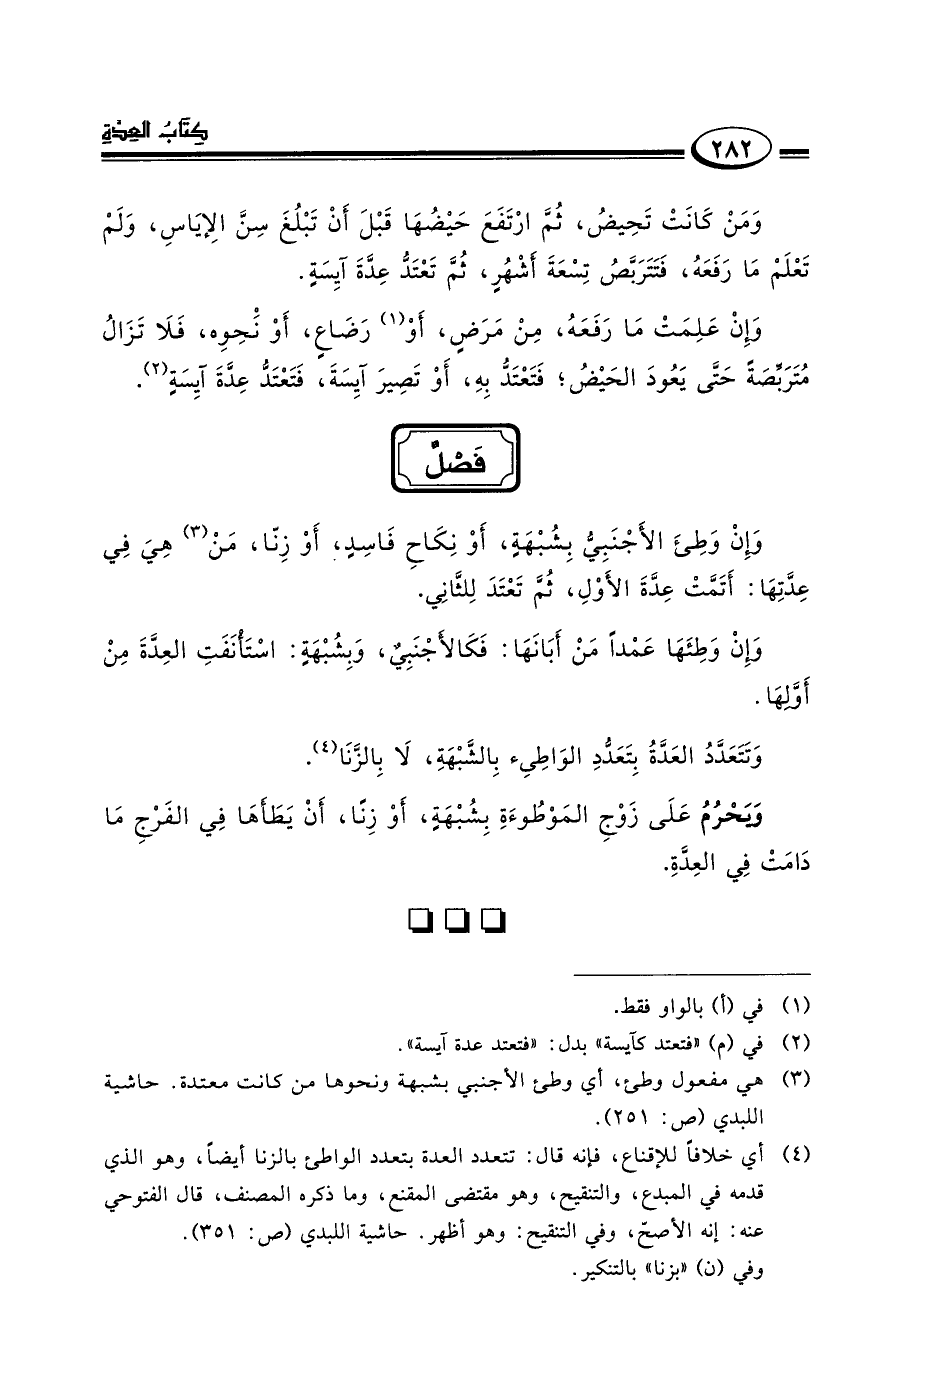 كِتَابُ العِدَّةِ
٢٨٢
وَمَنْ كَانَتْ تَحِيضُ، ثُمَّ ارْتَفَعَ حَيْضُهَا قَبْلَ أَنْ تَبْلُغَ سِنَّ الإِيَاسِ، وَلَمْ
تَعْلَمْ مَا رَفَعَهُ، فَتَتَرَبَّصُ تِسْعَةَ أَشْهُرٍ، ثُمَّ تَعْتَدُّ عِدَّةَ آيِسَةٍ.
وَإِنْ عَلِمَتْ مَا رَفَعَهُ، مِنْ مَرَضٍ، أَوْ(١) رَضَاعٍ، أَوْ نَحْوِهِ، فَلَا تَزَالُ
مُتَرَبِّصَةً حَتَّى يَعُودَ الحَيْضُ؛ فَتَعْتَدُّ بِهِ، أَوْ تَصِيرَ آيِسَةَ، فَتَعْتَدُّ عِدَّةَ آيِسَةٍ(٢).
فَصْلٌ
وَإِنْ وَطِئَ الأَجْنَبِيُّ بِشُبْهَةٍ، أَوْ نِكَاحِ فَاسِدٍ، أَوْ زِنّا، مَنْ(٣) هِيَ فِي
عِدَّتِهَا: أَتَمَّتْ عِدَّةَ الأَوْلِ، ثُمَّ تَعْتَدَ لِلثَّانِي.
وَإِنْ وَطِئَهَا عَمْداً مَنْ أَبَانَهَا: فَكَالأَجْنَبِيِّ، وَبِشُبْهَةٍ: اسْتَأْنَفَتِ العِدَّةَ مِنْ
أَوَّلِهَا.
وَتَتَعَدَّدُ العَدَّةُ بِتَعَدُّدِ الوَاطِىءِ بِالشَّبْهَةِ، لَا بِالزَّنَا(٤).
وَيَحْرُمُ عَلَى زَوْجِ المَوْطُوءَةِ بِشُبْهَةٍ، أَوْ زِنًا، أَنْ يَطَأَهَا فِي الفَرْجِ مَا
دَامَتْ فِي العِدَّةِ.
(١) في (أ) بالواو فقط.
(٢) في (م) «فتعتد كآيسة» بدل: «فتعتد عدة آيسة».
(٣) هي مفعول وطئ، أي وطئ الأجنبي بشبهة ونحوها من كانت معتدة. حاشية
اللبدي (ص: ٢٥١).
(٤) أي خلافاً للإقناع، فإنه قال: تتعدد العدة بتعدد الواطئ بالزنا أيضاً، وهو الذي
قدمه في المبدع، والتنقيح، وهو مقتضى المقنع، وما ذكره المصنف، قال الفتوحي
عنه: إنه الأصحّ، وفي التنقيح: وهو أظهر. حاشية اللبدي (ص: ٣٥١).
وفي (ن) «بزنا» بالتنكير.